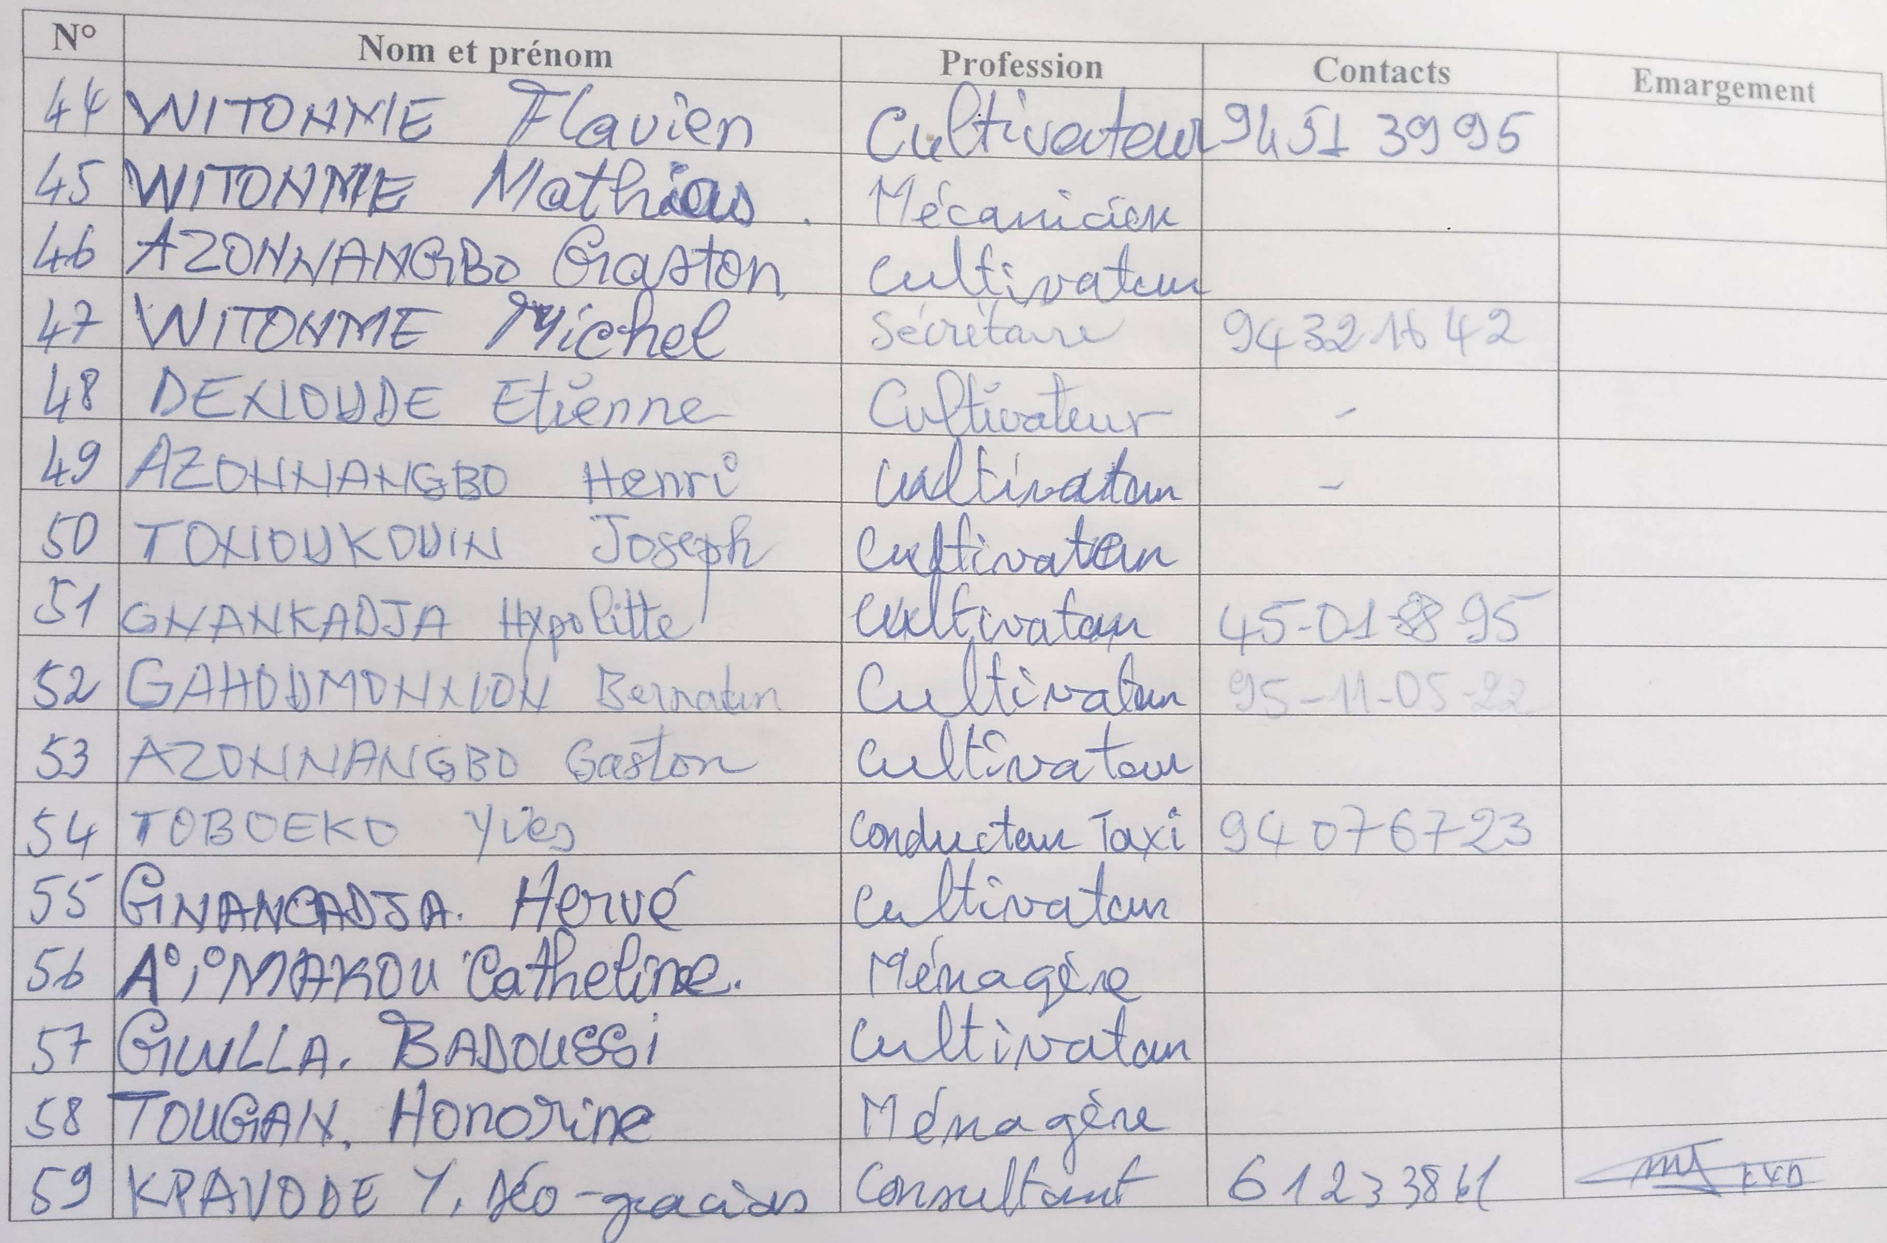 N° Nom et prénom Profession Contacts Emargement
44 WITONNIE Flavien Cultivateur 9451 3995
45 WITONME Mathias. Mécanicien
46 AZONNANGBO Gaston Cultivateur
47 WITONME Michel Sécrétaire 94321642
48 DEXIOUDE Etienne Cultivateur -
49 AZONNANGBO Henri Cultivateur -
50 TOXIOUKOUIN Joseph Cultivateur
51 GNANKADJA Hypolitte Cultivateur 45-01-88 95
52 GAHOUMONXION Cultivateur 95-11-05-22
53 AZONNANGBO Gaston Cultivateur
54 TOBOEKO Yves Conducteur Taxi 94076723
55 GNANCADJA. Hervé Cultivateur
56 AÏMAKOU Catheline. Ménagère
57 GUILLA. BADOUSSI Cultivateur
58 TOUGAN. Honorine Ménagère
59 KPAVODE Y. Déo-gracias Consultant 61233861